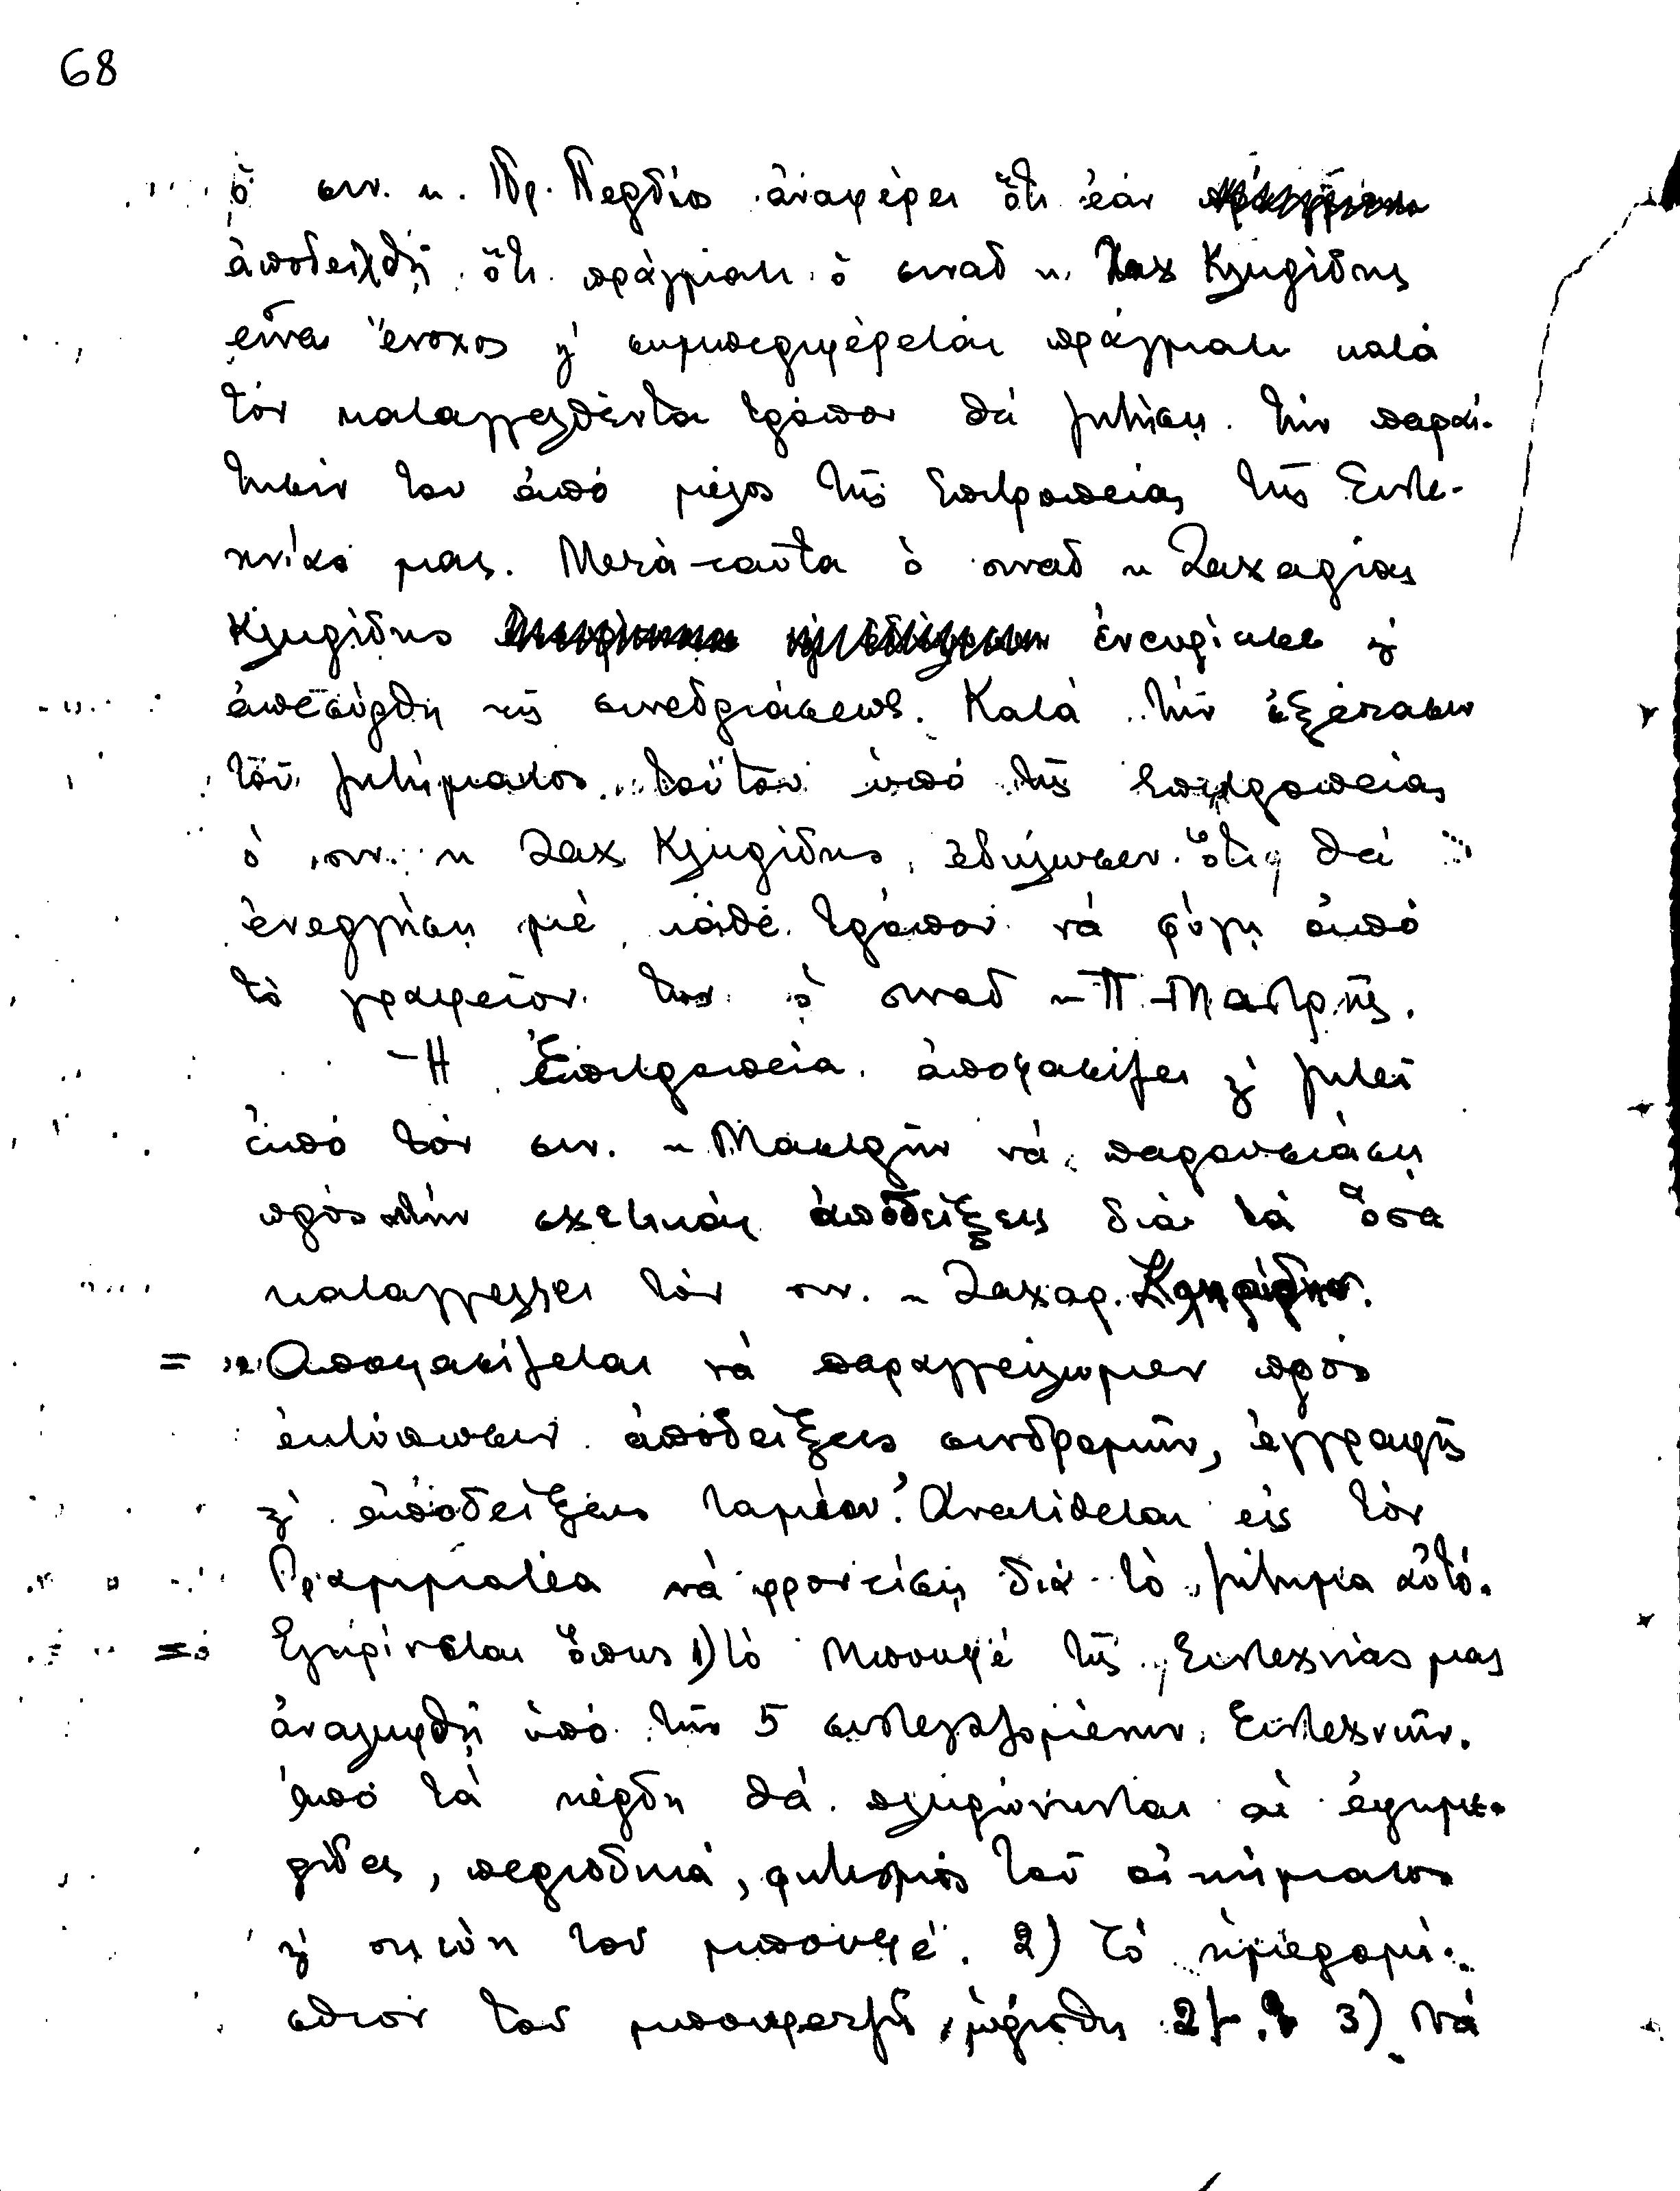 68
ὁ συν. κ. Γρ. Περδίος ἀναφέρει ὅτι ἐάν
ἀποδειχθῇ ὅτι πράγματι ὁ συναδ κ. Ζαχ Κληρίδης
εἶναι ἔνοχος ϗ συμπεριφέρεται πράγματι κατά
τόν καταγγελθέντα τρόπον θά ζητήσῃ τήν παραί-
τησίν του ἀπό μέλος τῆς Ἐπιτροπείας τῆς Συντε-
χνίας μας. Μετὰ ταῦτα ὁ συναδ κ Ζαχαρίας
Κληρίδης ϗ
ἀπεσύρθη τῆς συνεδριάσεως. Κατά τήν ἐξέτασιν
τοῦ ζητήματος τούτου ὑπό τῆς Ἐπιτροπείας
ὁ συν. κ Ζαχ Κληρίδης, ἐδήλωσεν ὅτι θά
ἐνεργήσῃ μέ κάθε τρόπον νά φύγῃ ἀπό
τὸ γραφεῖον του ὁ συναδ κ Π Μαστρῆς.
Η Ἐπιτροπεία ἀποφασίζει ϗ ζητεῖ
ἀπό τόν συν. κ Μαστρῆν νά παρουσιάσῃ
πρός τήν σχετικάς ἀποδείξεις διά τά ὅσα
καταγγέλλει τόν συν. κ Ζαχαρ. Κληρίδην.
= Ἀποφασίζεται νά παραγγείλωμεν πρός
ἐκτύπωσιν ἀποδείξεις συνδρομῶν, ἐγγραφῆς
ϗ ἀποδείξεις ταμίου. Ἀνατίθεται εἰς τόν
Γραμματέα νά φροντίσῃ διά τό ζήτημα αὐτό.
= Ἐγκρίνεται ὅπως 1) τό Μπουφέ τῆς Συντεχνίας μας
ἀναληφθῇ ὑπό τῶν 5 συστεγαζομένων Συντεχνιῶν.
ἀπό τά κέρδη θά πληρώνωνται αἱ ἐφημε-
ρίδες, περιοδικά, φωτισμός τοῦ οἰκήματος
ϗ σκεύη τοῦ μπουφέ. 2) Τό ἡμερομί-
σθιον τοῦ μπουφετζῆ, ὡρίσθη 2/- 3) Νά